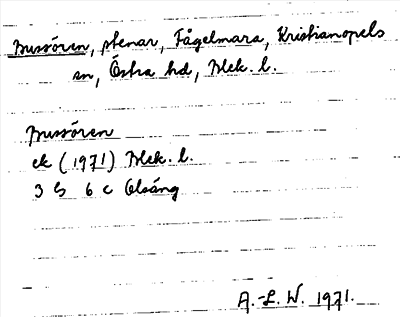 Mussören, stenar, Fågelmara, Kristianopels
sn, Östra hd, Blek. l.
Mussören
ek (1971) Blek. l.
3 G 6 c Olsäng
A.-L. W. 1971.